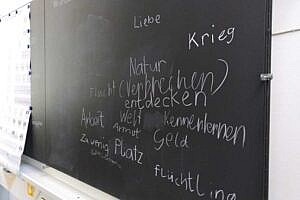 Liebe
Krieg
Natur
Flucht (verbreihen)
entdecken
Arbeit Welt kennenlernen
Armut Geld
Zu wenig Platz
Flüchtling